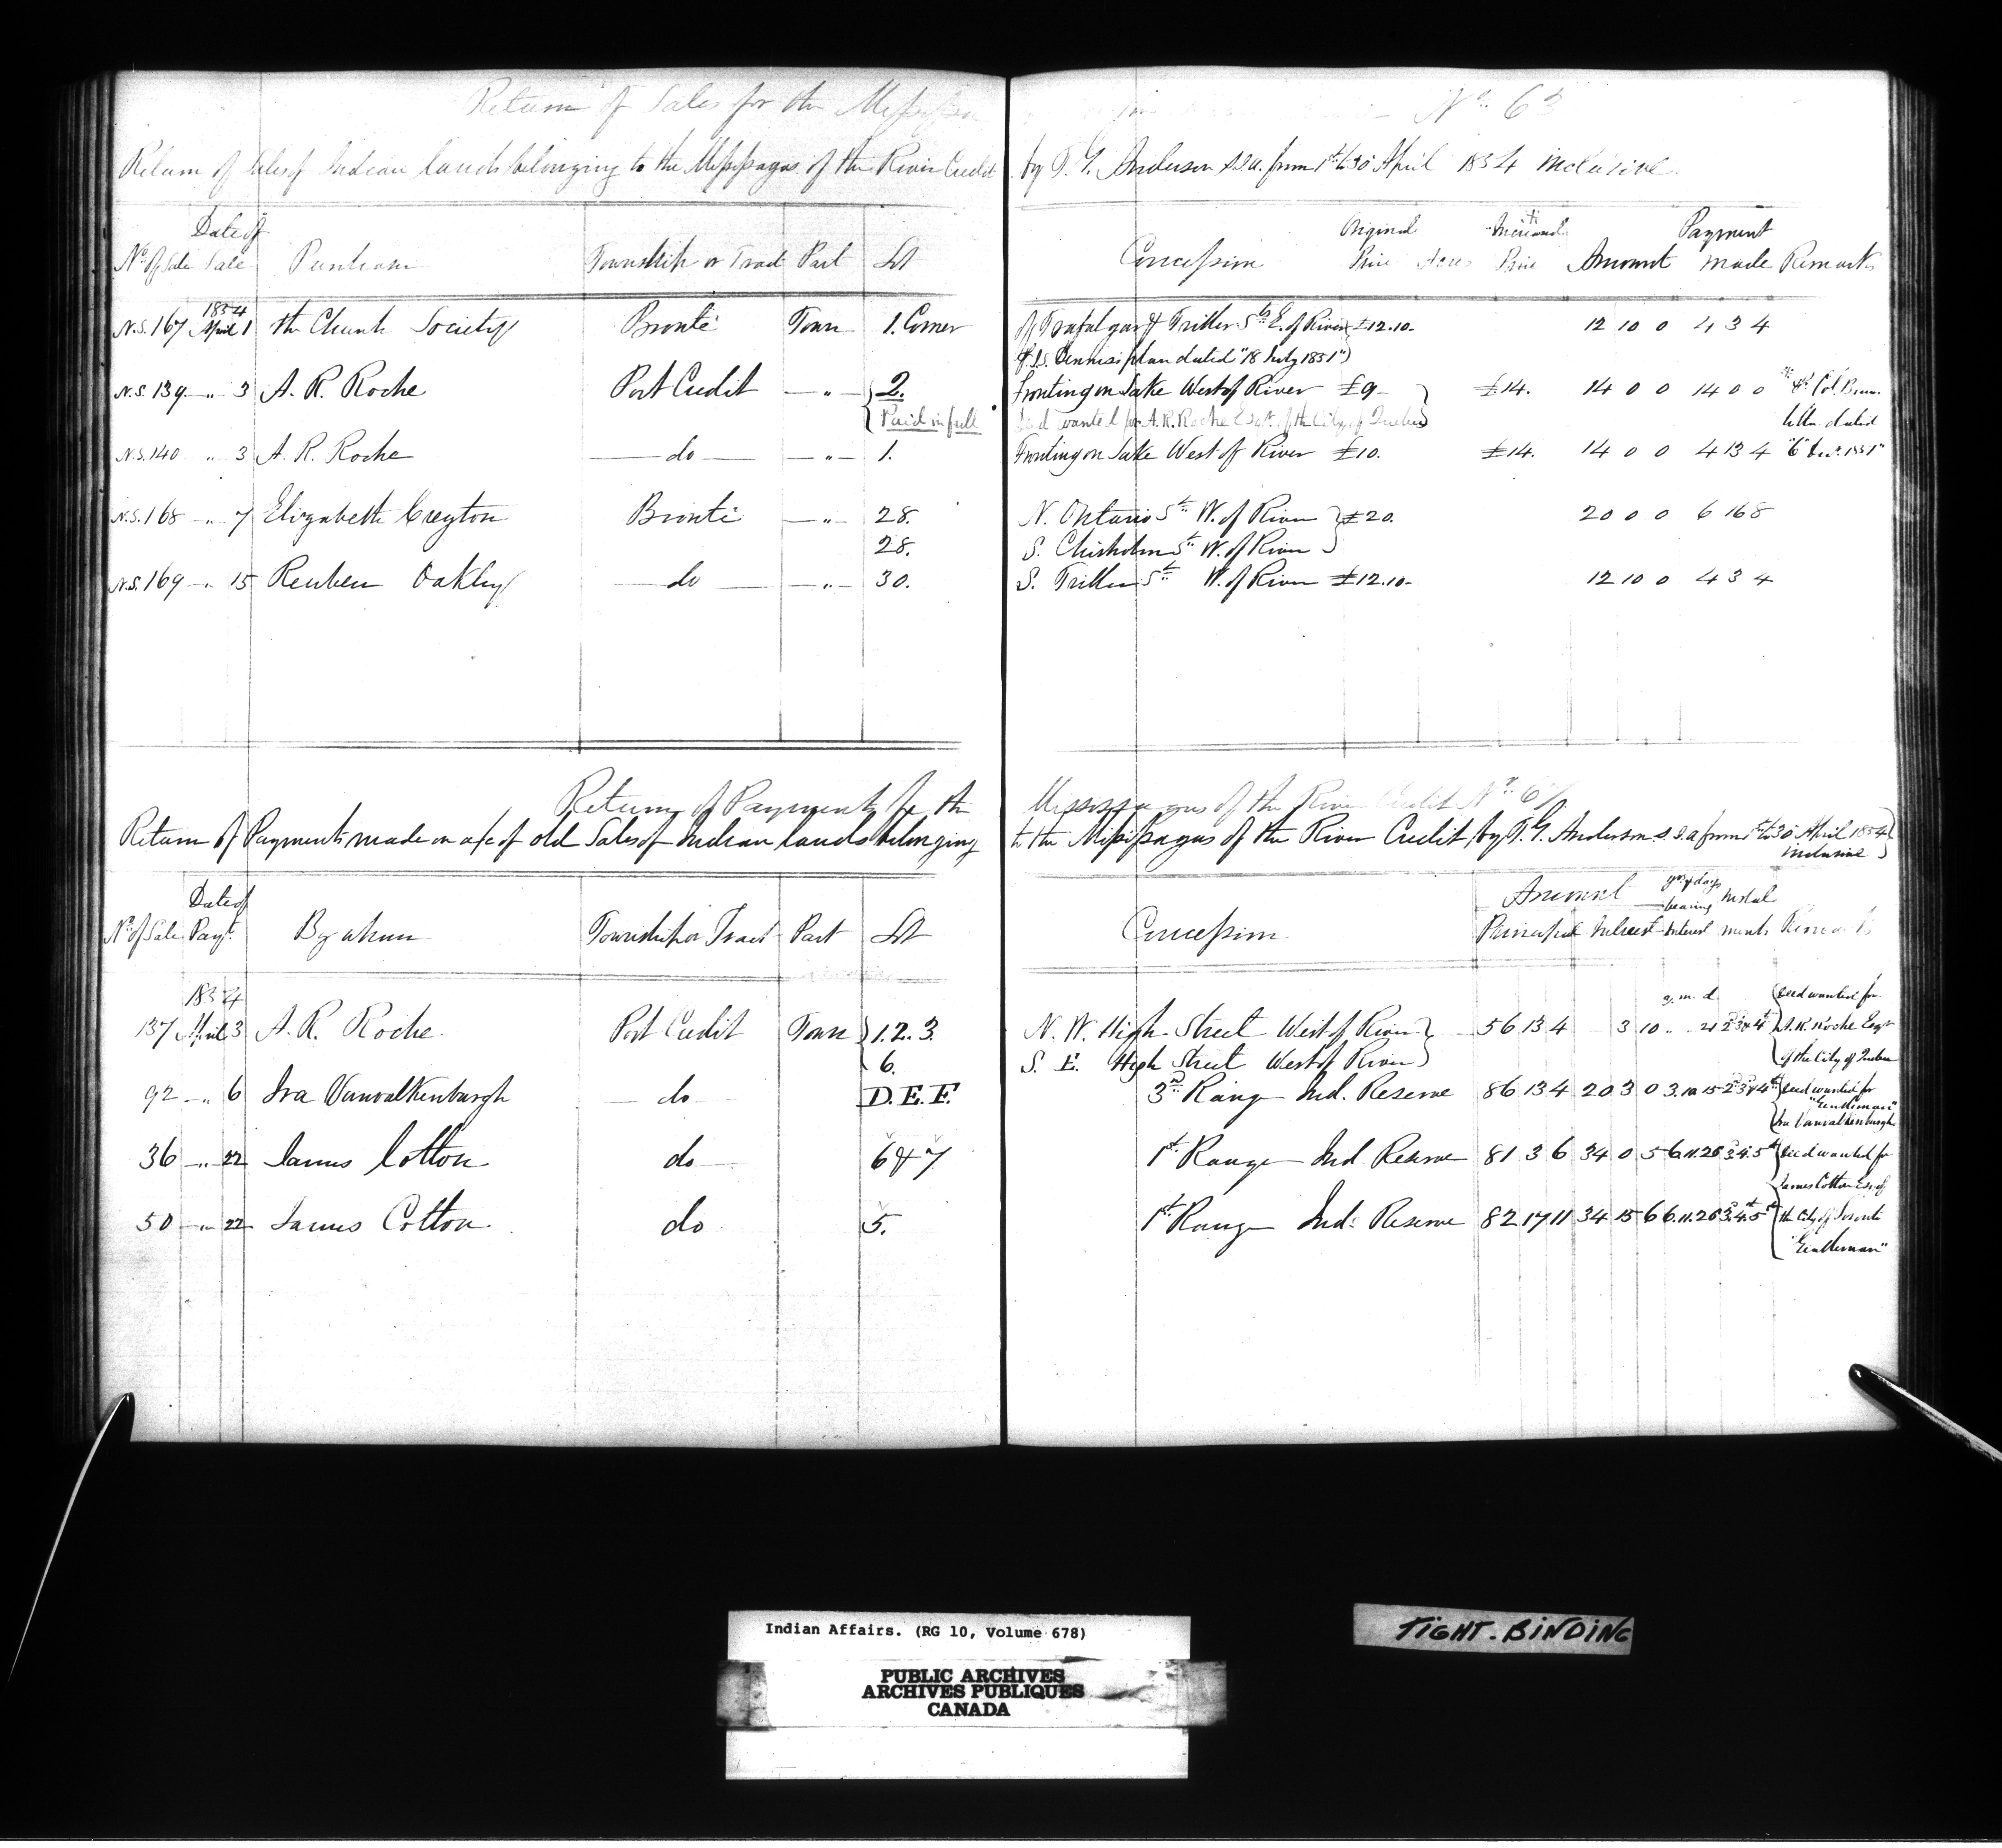 Return of Sales for the Missisa No. 63
Return of Sales of Indian lands belonging to the Missisagas of the River Credit by T. G. Anderson S.I.A. from 1st to 30 April 1854 inclusive.
No. of Sale Date of Sale Purchaser Township or Tract Part Lot Concession Original Price Acres Price Amount Payment made Remarks
1854
N.S. 167 April 1 the Church Society Bronté Town 1. Corner of Trafalgar & Triller Sts. E. of River £12.10- 12 10 0 4 3 4
J.S. Dennis plan dated "18 July 1851")
N.S. 139 " 3 A. R. Roche Port Credit " 2. Fronting on Lake West of River £9- £14. 14 0 0 14 0 0
Paid in full Deed wanted for A. R. Roche Esqr. of the City of Quebec letter dated
N.S. 140 " 3 A. R. Roche do " 1. Fronting on Lake West of River £10. £14. 14 0 0 4 13 4 "6" 1851"
N.S. 168 " 7 Elizabeth Creyton Bronté " 28. N. Ontario St. W. of River } £20. 20 0 0 6 16 8
28. S. Chisholm St. W. of River
N.S. 169 " 15 Reuben Oakley do " 30. S. Triller St. W. of River £12.10- 12 10 0 4 3 4
Return of Payments for the Mississagas of the River Credit No.
Return of Payments made on a/c of old Sales of Indian lands belonging to the Missisagas of the River Credit, by T. G. Anderson S.I.A from 1st to 30 April 1854
inclusive
No. of Sale Date of Payt. By whom Township or Tract Part Lot Concession Amount Principal Interest yrs & days bearing Interest Instalments Remarks
1854 y. m. d. Deed wanted for
137 April 3 A. R. Roche Port Credit Town 1. 2. 3. N. W. High Street West of River 56 13 4 3 10 A. R. Roche Esqr
6. S. E. High Street West of River of the City of Quebec
92 " 6 Ira Vanvalkenburgh do D. E. F. 3rd Range Ind. Reserve 86 13 4 20 3 0 3. 10 15 2 3 & 4th Deed wanted for
"Gentleman"
Ira Vanvalkenburgh
36 " 22 James Cotton do 6 & 7 1st Range Ind Reserve 81 3 6 34 0 5 6.11.26 3.4.5th Deed wanted for
James Cotton Esq of
50 " 22 James Cotton do 5. 1st Range Ind. Reserve 82 17 11 34 15 6 6.11.26 3.4.5th the City of Toronto
"Gentleman"
Indian Affairs. (RG 10, Volume 678)
TIGHT-BINDING
PUBLIC ARCHIVES
ARCHIVES PUBLIQUES
CANADA